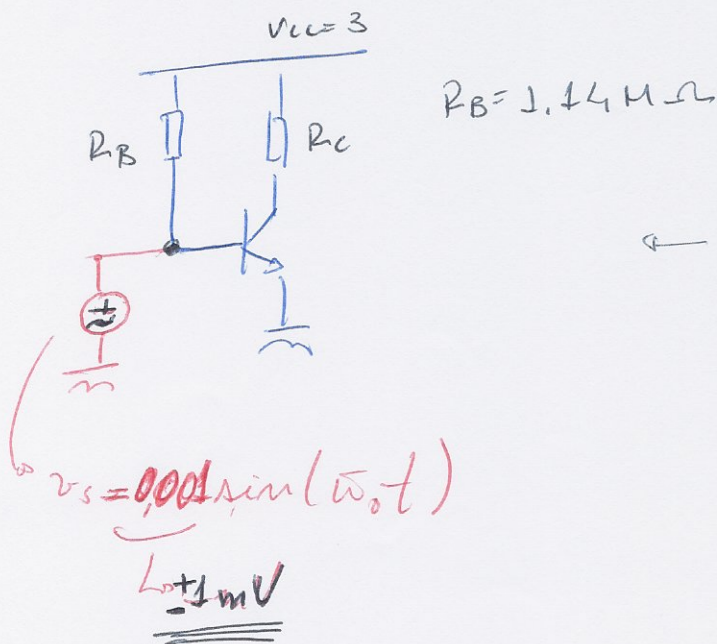 Vcc=3
RB=1.14 MΩ
RB
RC
vs=0,001 sin(ω̄o t)
±1mV